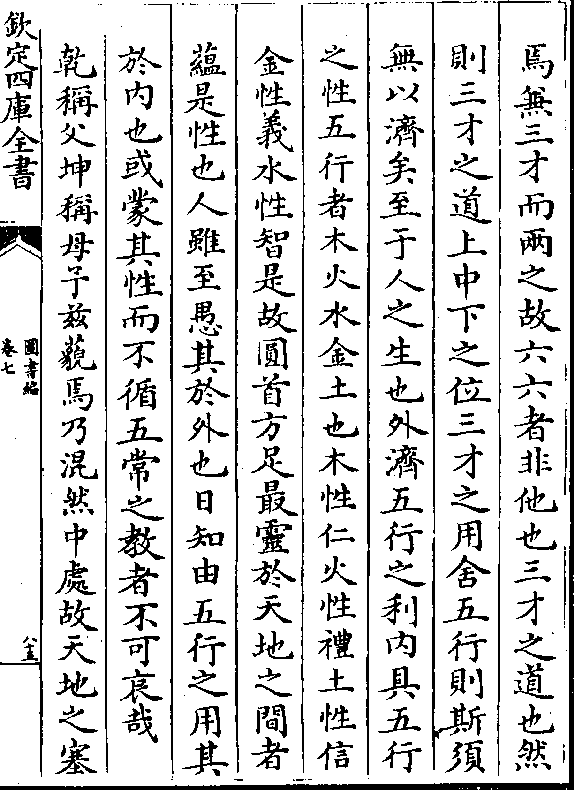 焉無三才而兩之故六六者非他也三才之道也然
則三才之道上中下之位三才之用舍五行則斯須
無以濟矣至于人之生也外濟五行之利内具五行
之性五行者木火水金土也木性仁火性禮土性信
金性義水性智是故圓首方足最靈於天地之間者
蘊是性也人雖至愚其於外也日知由五行之用其
於内也或蒙其性而不循五常之教者不可哀哉
乾稱父坤稱母予兹藐焉乃混然中處故天地之塞
欽定四庫全書
圖書編
卷七